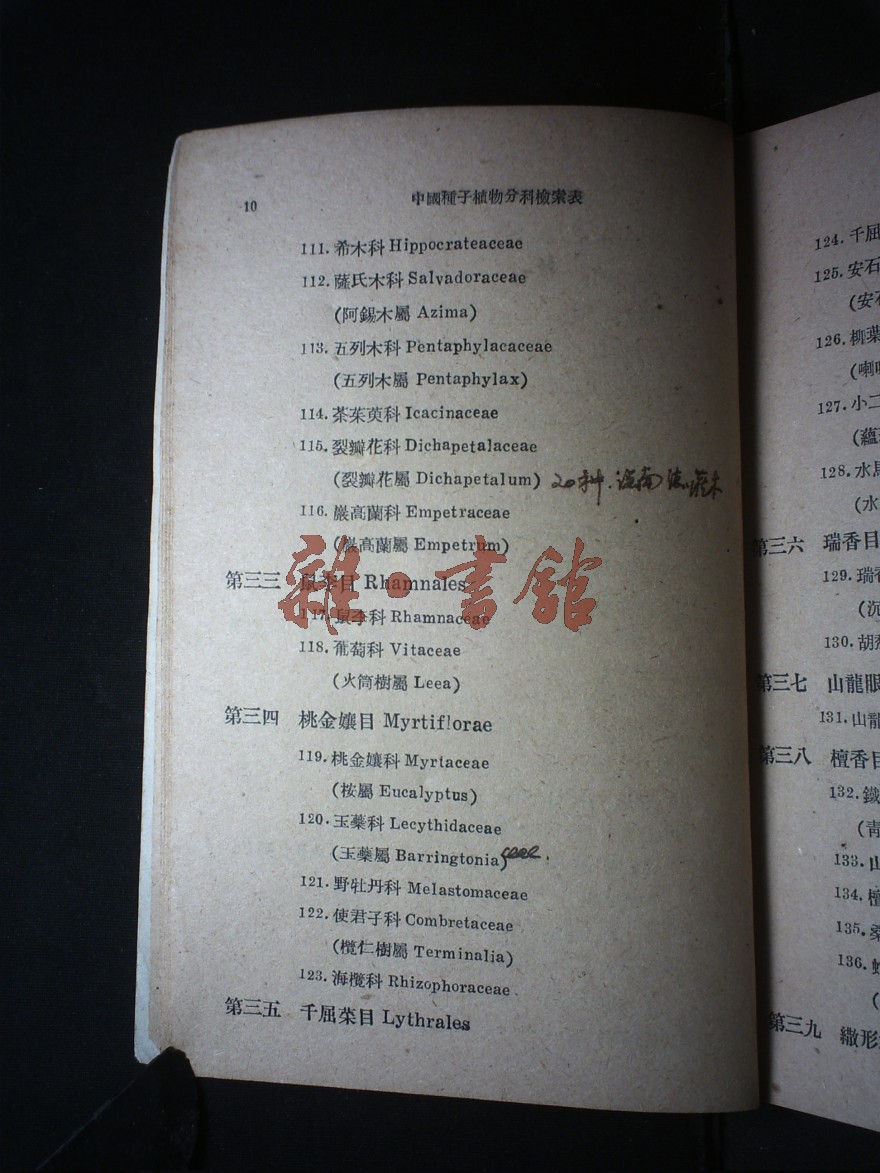 10
中國種子植物分科檢索表
111. 希木科 Hippocrateaceae
112. 薩氏木科 Salvadoraceae
(阿錫木屬 Azima)
113. 五列木科 Pentaphylacaceae
(五列木屬 Pentaphylax)
114. 茶茱萸科 Icacinaceae
115. 裂瓣花科 Dichapetalaceae
(裂瓣花屬 Dichapetalum) 20种.
116. 巖高蘭科 Empetraceae
(巖高蘭屬 Empetrum)
雜·書舘
第三三 鼠李目 Rhamnales
117. 鼠李科 Rhamnaceae
118. 葡萄科 Vitaceae
(火筒樹屬 Leea)
第三四 桃金孃目 Myrtiflorae
119. 桃金孃科 Myrtaceae
(桉屬 Eucalyptus)
120. 玉蘂科 Lecythidaceae
(玉蘂屬 Barringtonia) ceae.
121. 野牡丹科 Melastomaceae
122. 使君子科 Combretaceae
(欖仁樹屬 Terminalia)
123. 海欖科 Rhizophoraceae
第三五 千屈菜目 Lythrales
124. 千屈
125. 安石
(安石
126. 柳葉
(喇
127. 小二
(蘊
128. 水馬
(水
第三六 瑞香目
129. 瑞香
(沉
130. 胡
第三七 山龍眼
131. 山龍
第三八 檀香目
132. 鐵
(青
133. 山
134. 檀
135. 桑
136. 蛇
(
第三九 繖形